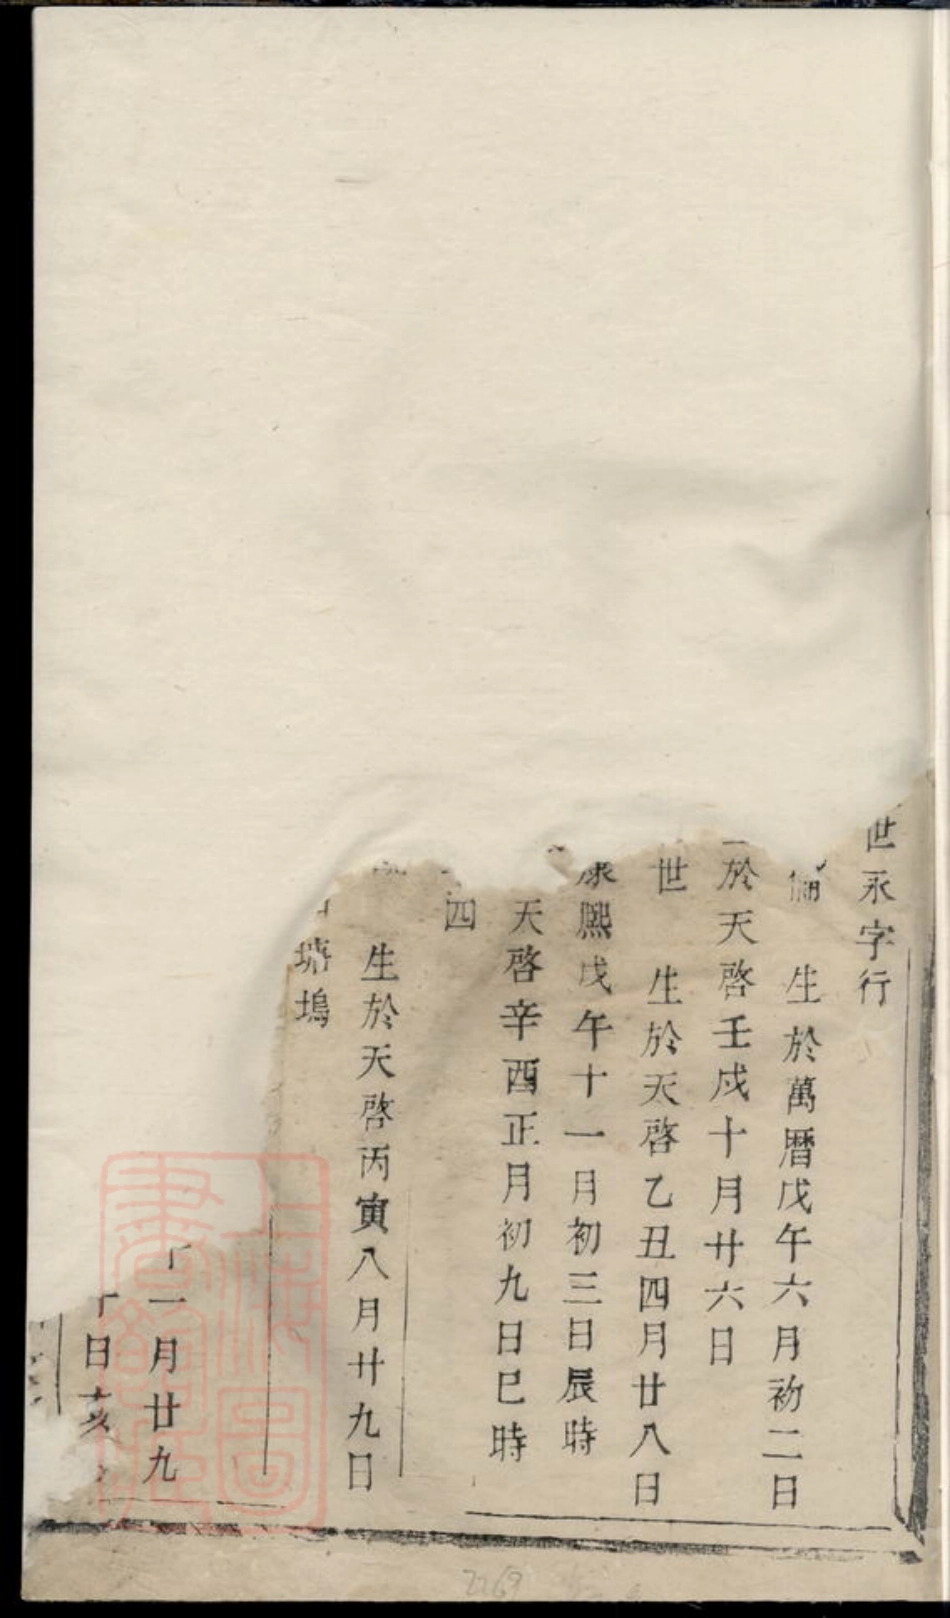 世永字行
生於萬曆戊午六月初二日
於天啓壬戍十月廿六日
世 生於天啓乙丑四月廿八日
康熙戊午十一月初三日辰時
天啓辛酉正月初九日巳時
四
生於天啓丙寅八月廿九日
塘塢
十一月廿九
日亥
上海圖書館藏
2269